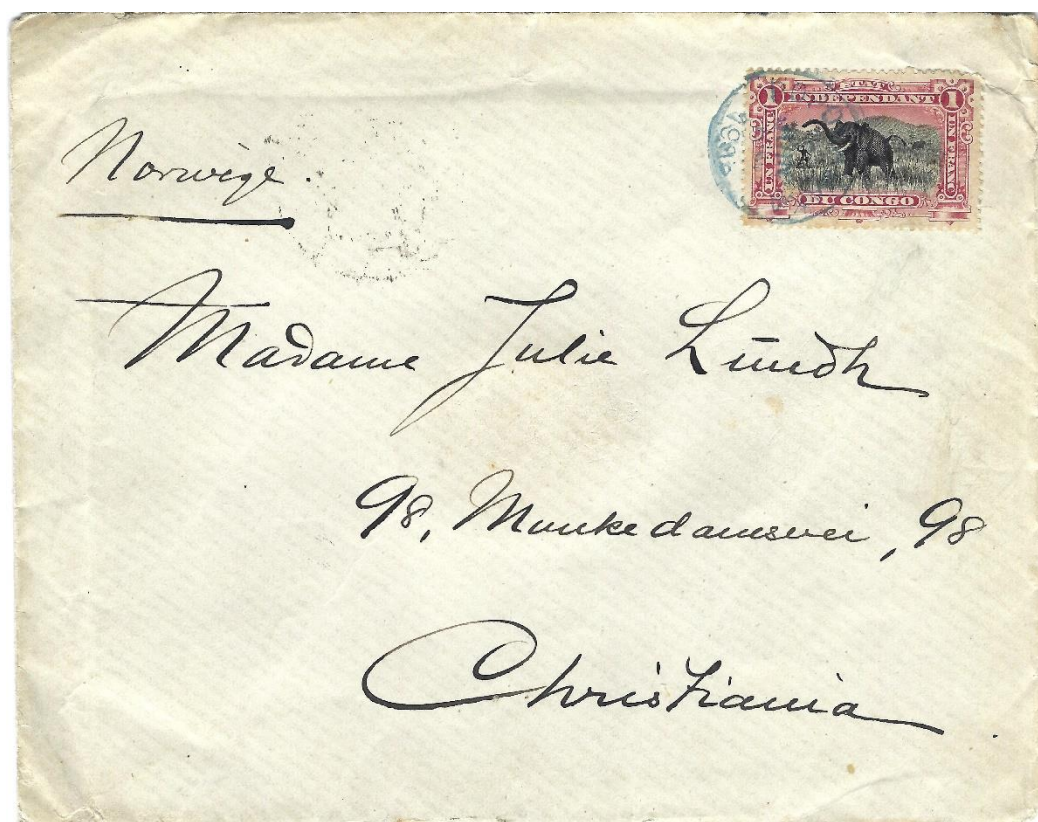 ETAT
1 INDEPENDANT 1
UN FRANC UN FRANC
DU CONGO
Norwège.
Madame Julie Lundh
98, Munkedamsvei, 98
Christiania